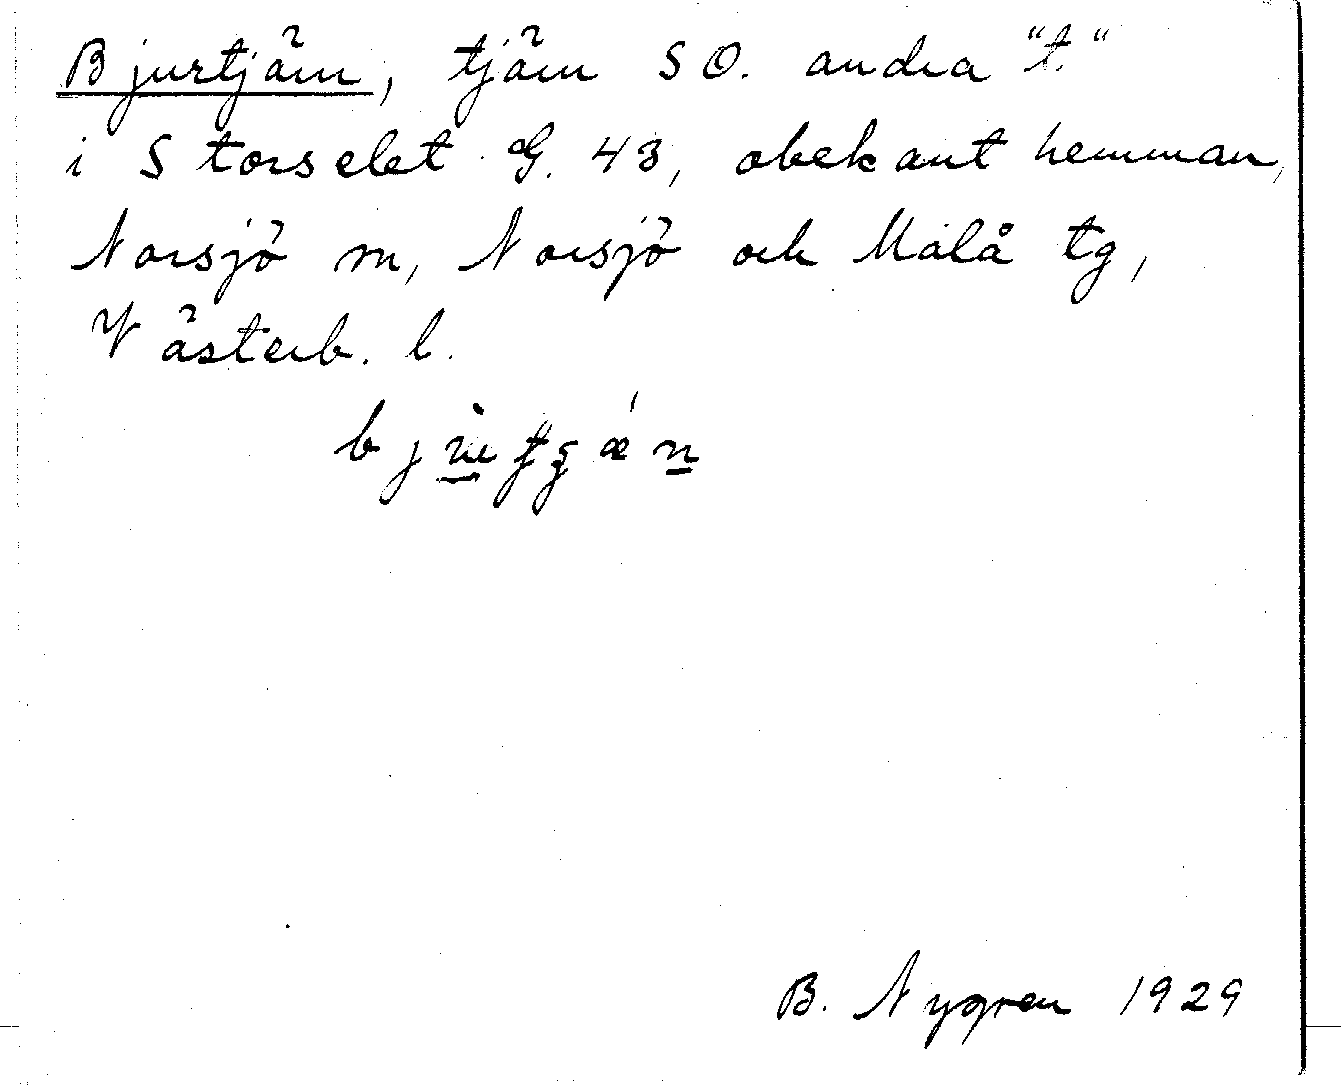 Bjurtjärn, tjärn SO. andra "t."
i Storselet G. 43, obekant hemman,
Norsjö sn, Norsjö och Malå tg,
Västerb. l.
B. Nygren 1929